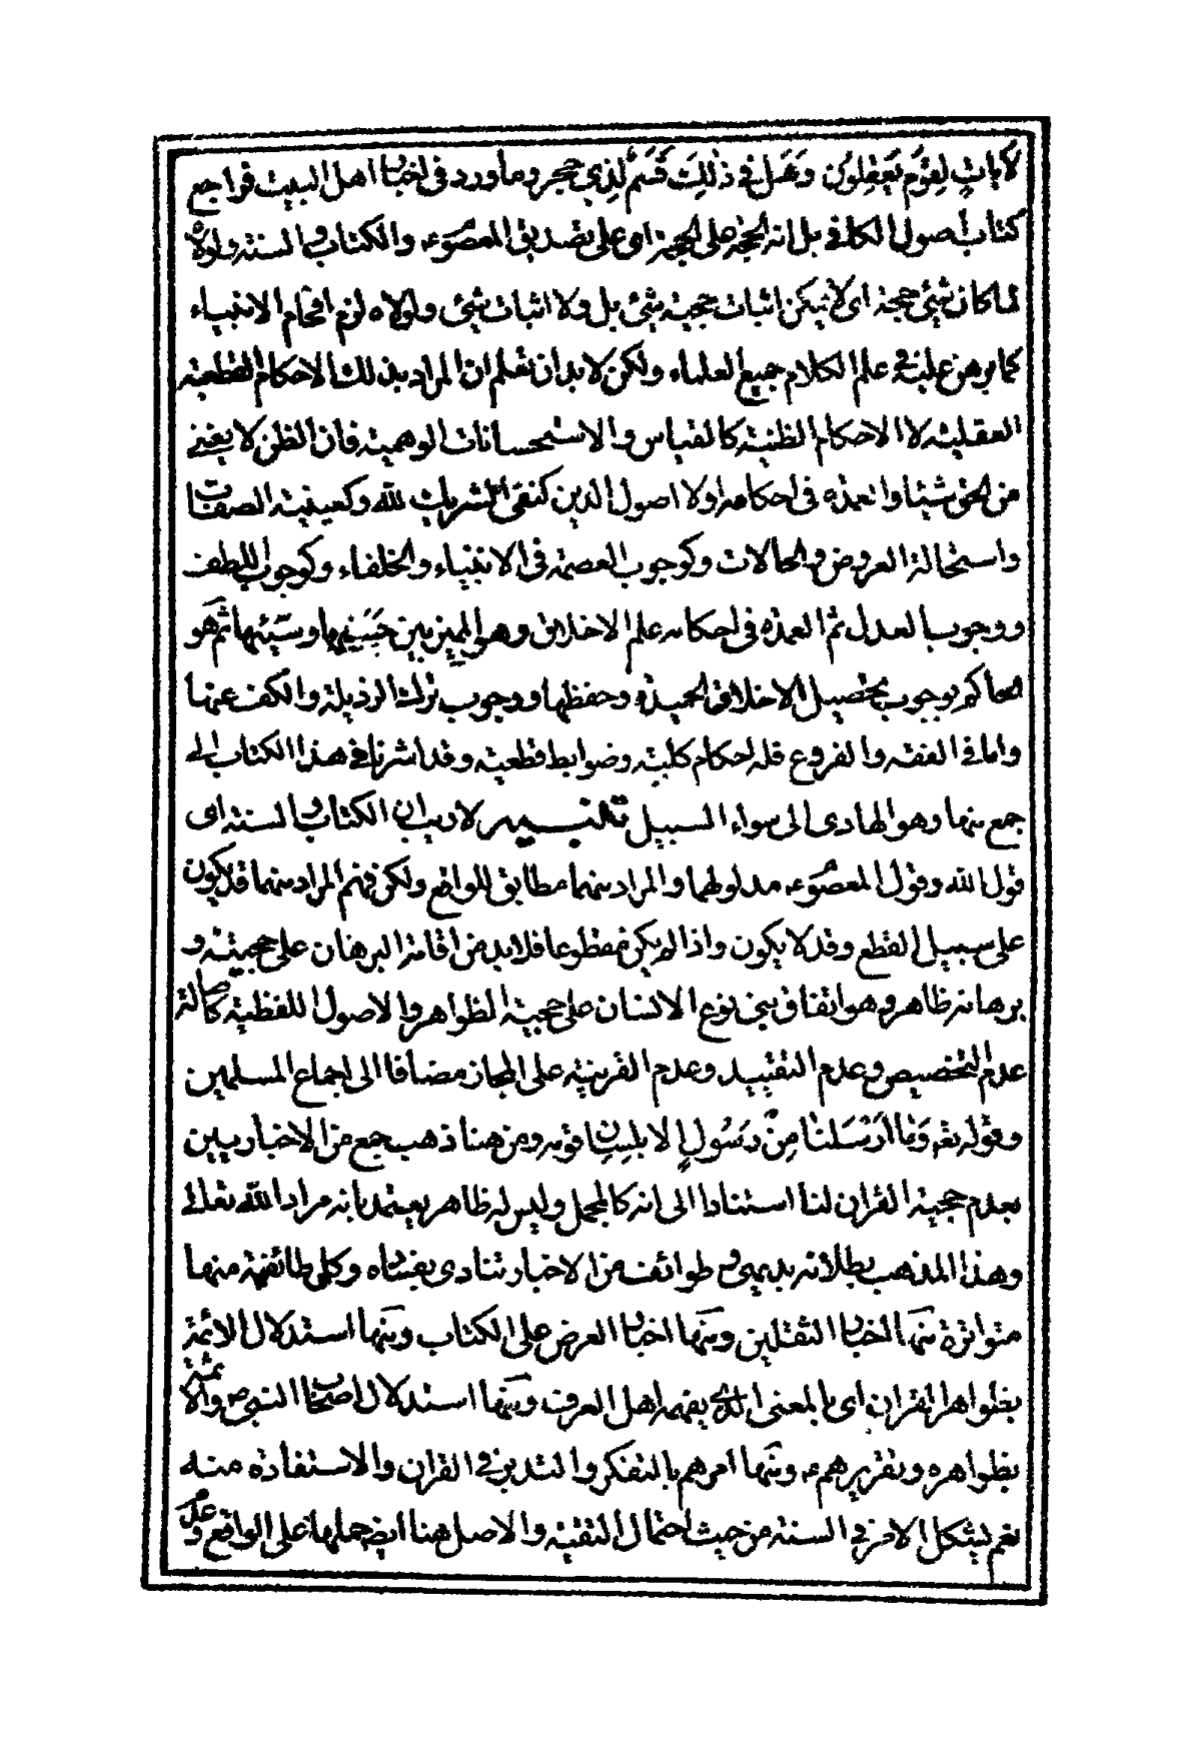 لآيات لِقَوْمٍ يَعْقِلُونَ وَهَل في ذٰلِكَ قَسَمٌ لِذِي حجر وما ورد فى اخبار اهل البيت فراجع
كتاب اصول الكافى بل انه الحجة على الحجج اى على تصديق المعصوم ع والكتاب والسنة ولولاه
لما كان شيئ حجة اى لا يمكن اثبات حجية شئ بل ولا اثبات شئ ولولاه لزم افحام الانبياء
كما برهن عليه في علم الكلام جميع العلماء ولكن لا بد ان تعلم ان المراد بذلك الاحكام القطعية
العقلية لا الاحكام الظنية كالقياس والاستحسانات الوهمية فان الظن لا يغنى
من الحق شيئا والعمدة فى احكامه اولا اصول الدين كنفى الشريك لله وكعينية الصفات
واستحالة العروض والحالات وكوجوب العصمة فى الانبياء والخلفاء وكوجوب اللطف
ووجوب العدل ثم العمدة فى احكامه علم الاخلاق وهو المميز بين حَسَنِها وسيّئها ثم هو
الحاكم بوجوب تحصيل الاخلاق الحميدة وحفظها ووجوب ترك الرذيلة والكف عنها
واما فى الفقه والفروع فله احكام كلية وضوابط قطعية وقد اشرنا في هذا الكتاب الى
جمع منها وهو الهادى الى سواء السبيل تنبيه لا ريب ان الكتاب والسنة اى
قول الله وقول المعصوم ع مدلولهما والمراد منهما مطابق للواقع ولكن فهم المراد منهما قد يكون
على سبيل القطع وقد لا يكون واذا لم يكن مقطوعا فلا بد من اقامة البرهان على حجيته و
برهانه ظاهر وهو اتفاق بنى نوع الانسان على حجية الظواهر والاصول اللفظية كاصالة
عدم التخصيص وعدم التقييد وعدم القرينة على المجاز مضافا الى اجماع المسلمين
وقوله تعه وَمَا اَرْسَلْنا مِنْ رَسُولٍ الا بلِسانِ قومه ومن هنا ذهب جمع من الاخباريين
بعدم حجية القران لنا استنادا الى انه كالمجمل وليس له ظاهر يعتمد بانه مراد الله تعالى
وهذا المذهب بطلانه بديهى و طوائف من الاخبار تنادى بفساده وكل طائفة منها
متواترة منها اخبار الثقلين ومنها اخبار العرض على الكتاب ومنها استدلال الائمة
بظواهر القران اى بالمعنى الذى يفهمه اهل العرف ومنها استدلال اصحاب النبى ص والائمة
بظواهره وتقريرهم ع ومنها امرهم بالتفكر والتدبر في القران والاستفادة منه
نعم يشكل الامر في السنة من حيث احتمال التقية والاصل هنا ايضا حملها على الواقع وعدم